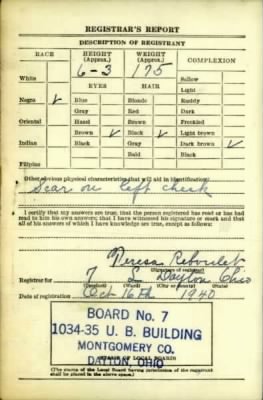 REGISTRAR'S REPORT
DESCRIPTION OF REGISTRANT
RACE HEIGHT (Approx.) WEIGHT (Approx.) COMPLEXION
6-3 175
White Sallow
EYES HAIR Light
Negro ✓ Blue Blonde Ruddy
Gray Red Dark
Oriental Hazel Brown Freckled
Brown ✓ Black ✓ Light brown
Indian Black Gray Dark brown ✓
Bald Black
Filipino
Other obvious physical characteristics that will aid in identification
Scar on left cheek
I certify that my answers are true; that the person registered has read or has had read to him his own answers; that I have witnessed his signature or mark and that all of his answers of which I have knowledge are true, except as follows:
Neresa Reboulet
(Signature of registrar)
Registrar for 7 L Dayton Ohio
(Precinct) (Ward) (City or county) (State)
Date of registration Oct 16th 1940
BOARD No. 7
1034-35 U. B. BUILDING
MONTGOMERY CO.
DAYTON, OHIO
(STAMP OF LOCAL BOARD)
(The stamp of the Local Board having jurisdiction of the registrant shall be placed in the above space.)